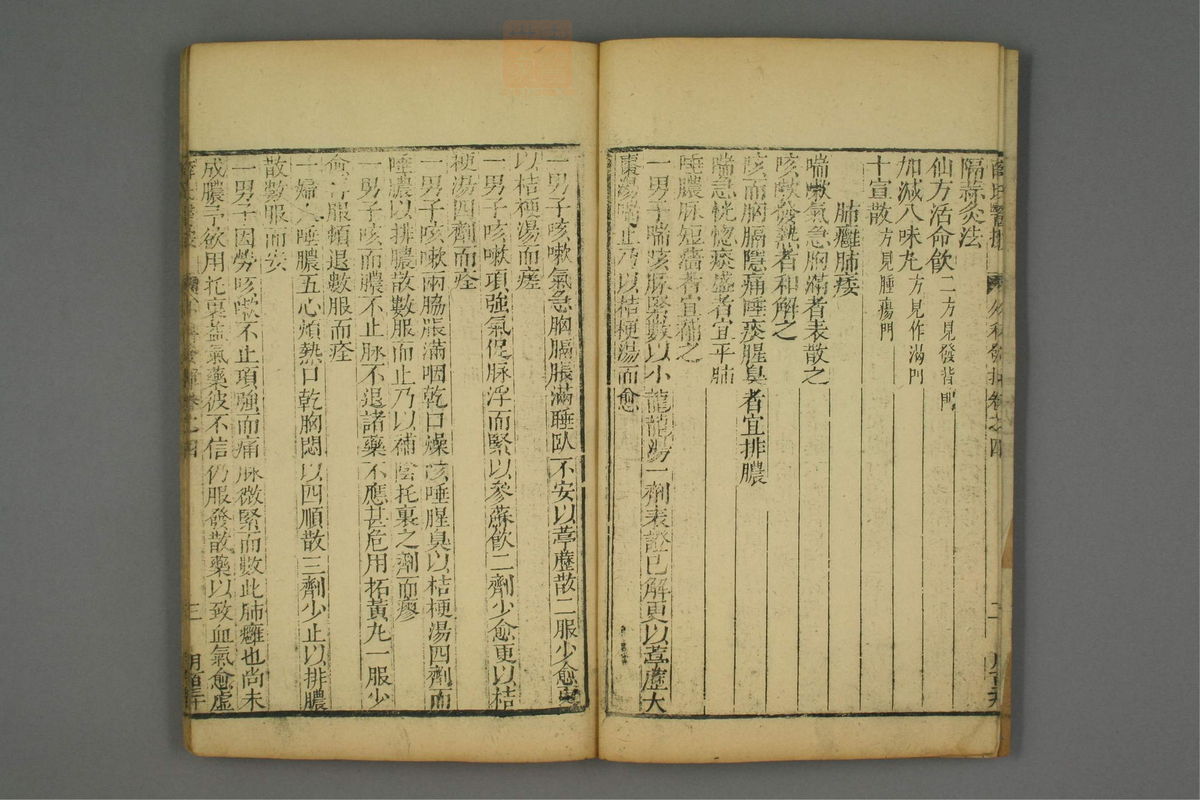 隔蒜灸法
仙方活命飲二方見發背門
加減八味丸方見作渴門
十宣散方見腫瘍門
肺癰肺痿
喘嗽氣急胸滿者表散之
咳嗽發熱者和解之
咳而胸膈隱痛唾痰腥臭者宜排膿
喘急恍惚痰盛者宜平肺
唾膿脉短濇者宜補之
一男子喘咳脉緊數以小龍湯一劑表證已解更以葶藶大
棗湯喘止乃以桔梗湯而愈
一男子咳嗽氣急胸膈脹滿睡臥不安以葶藶散二服少愈更
以桔梗湯而瘥
一男子咳嗽項強氣促脉浮而緊以參蘇飲二劑少愈更以桔
梗湯四劑而痊
一男子咳嗽兩脇脹滿咽乾口燥咳唾腥臭以桔梗湯四劑而
唾膿以排膿散數服而止乃以補陰托裏之劑而瘳
一男子咳而膿不止脉不退諸藥不應甚危用拓黃丸一服少
愈再服頓退數服而痊
一婦人唾膿五心煩熱口乾胸悶以四順散三劑少止以排膿
散數服而安
一男子因勞咳嗽不止項強而痛脉微緊而數此肺癰也尚未
成膿予欲用托裏益氣藥彼不信仍服發散藥以致血氣愈虛
三